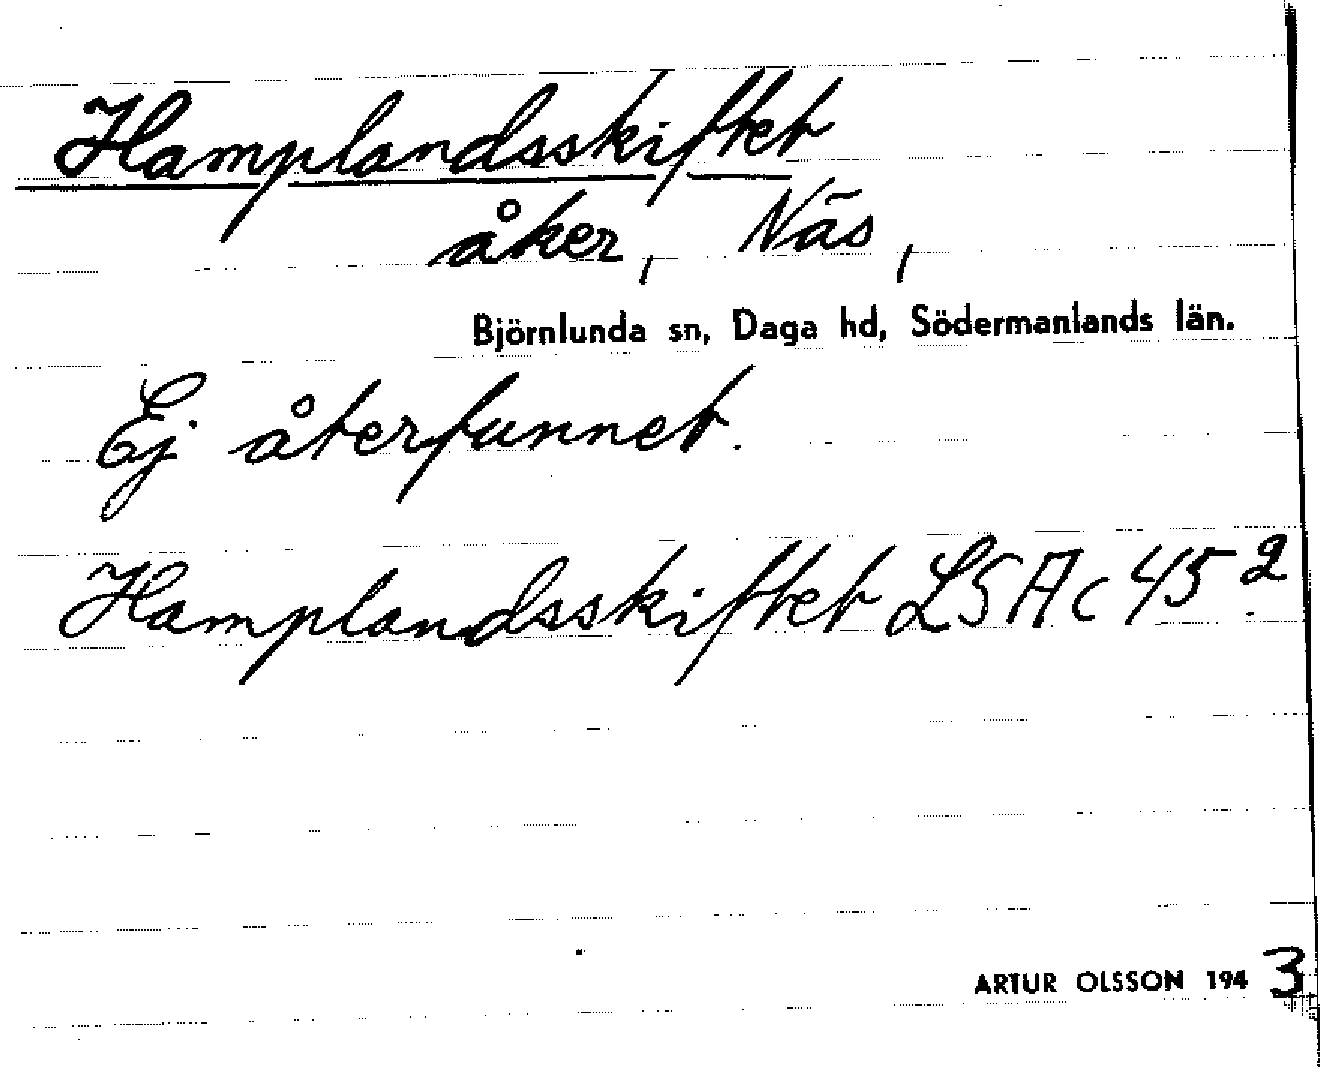 Hamplandsskiftet
åker, Näs,
Björnlunda sn, Daga hd, Södermanlands län.
Ej återfunnet.
Hamplandsskiftet LSA C 45²
ARTUR OLSSON 1943